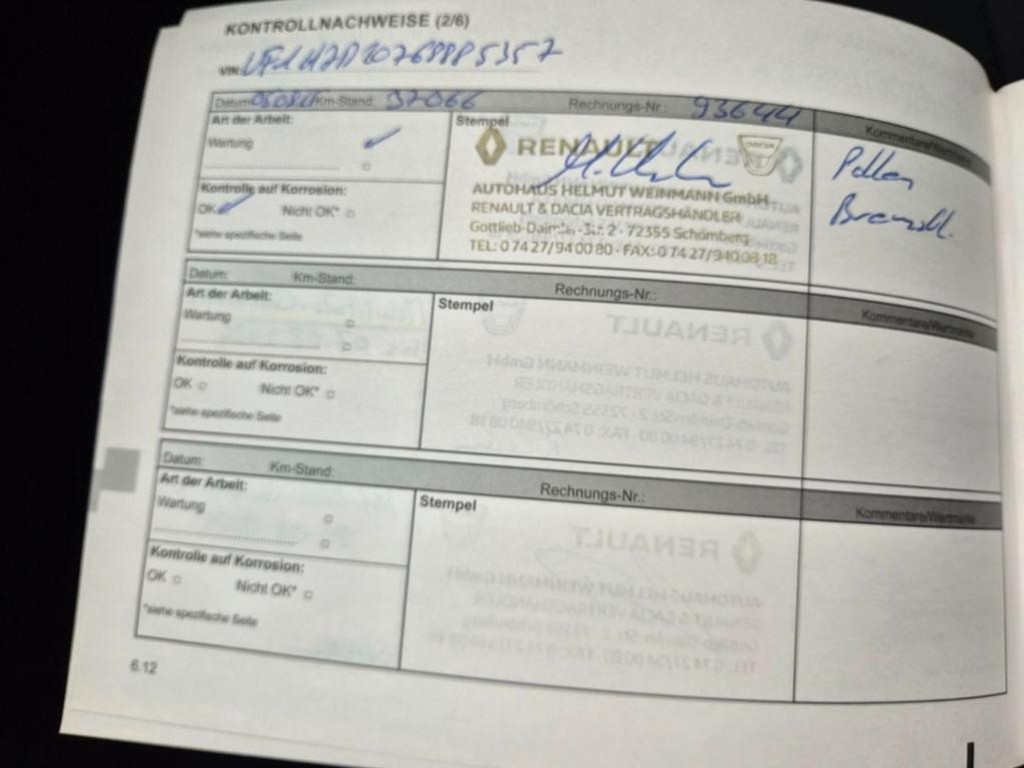 KONTROLLNACHWEISE (2/6)
VIN: VF1HJD20768885357
Datum: Km-Stand: 37066 Rechnungs-Nr.: 93644 Kommentare/Wertmarke
Art der Arbeit:
Wartung
Kontrolle auf Korrosion:
OK Nicht OK*
*siehe spezifische Seite
Stempel
RENAULT DACIA
AUTOHAUS HELMUT WEINMANN GmbH
RENAULT & DACIA VERTRAGSHÄNDLER
Gottlieb-Daimler-Str. 2 - 72355 Schömberg
TEL: 0 74 27/94 00 80 - FAX: 0 74 27/940 08 18
Pollen
Datum: Km-Stand: Rechnungs-Nr.: Kommentare/Wertmarke
Art der Arbeit:
Wartung
Kontrolle auf Korrosion:
OK Nicht OK*
*siehe spezifische Seite
Stempel
Datum: Km-Stand: Rechnungs-Nr.: Kommentare/Wertmarke
Art der Arbeit:
Wartung
Kontrolle auf Korrosion:
OK Nicht OK*
*siehe spezifische Seite
Stempel
6.12